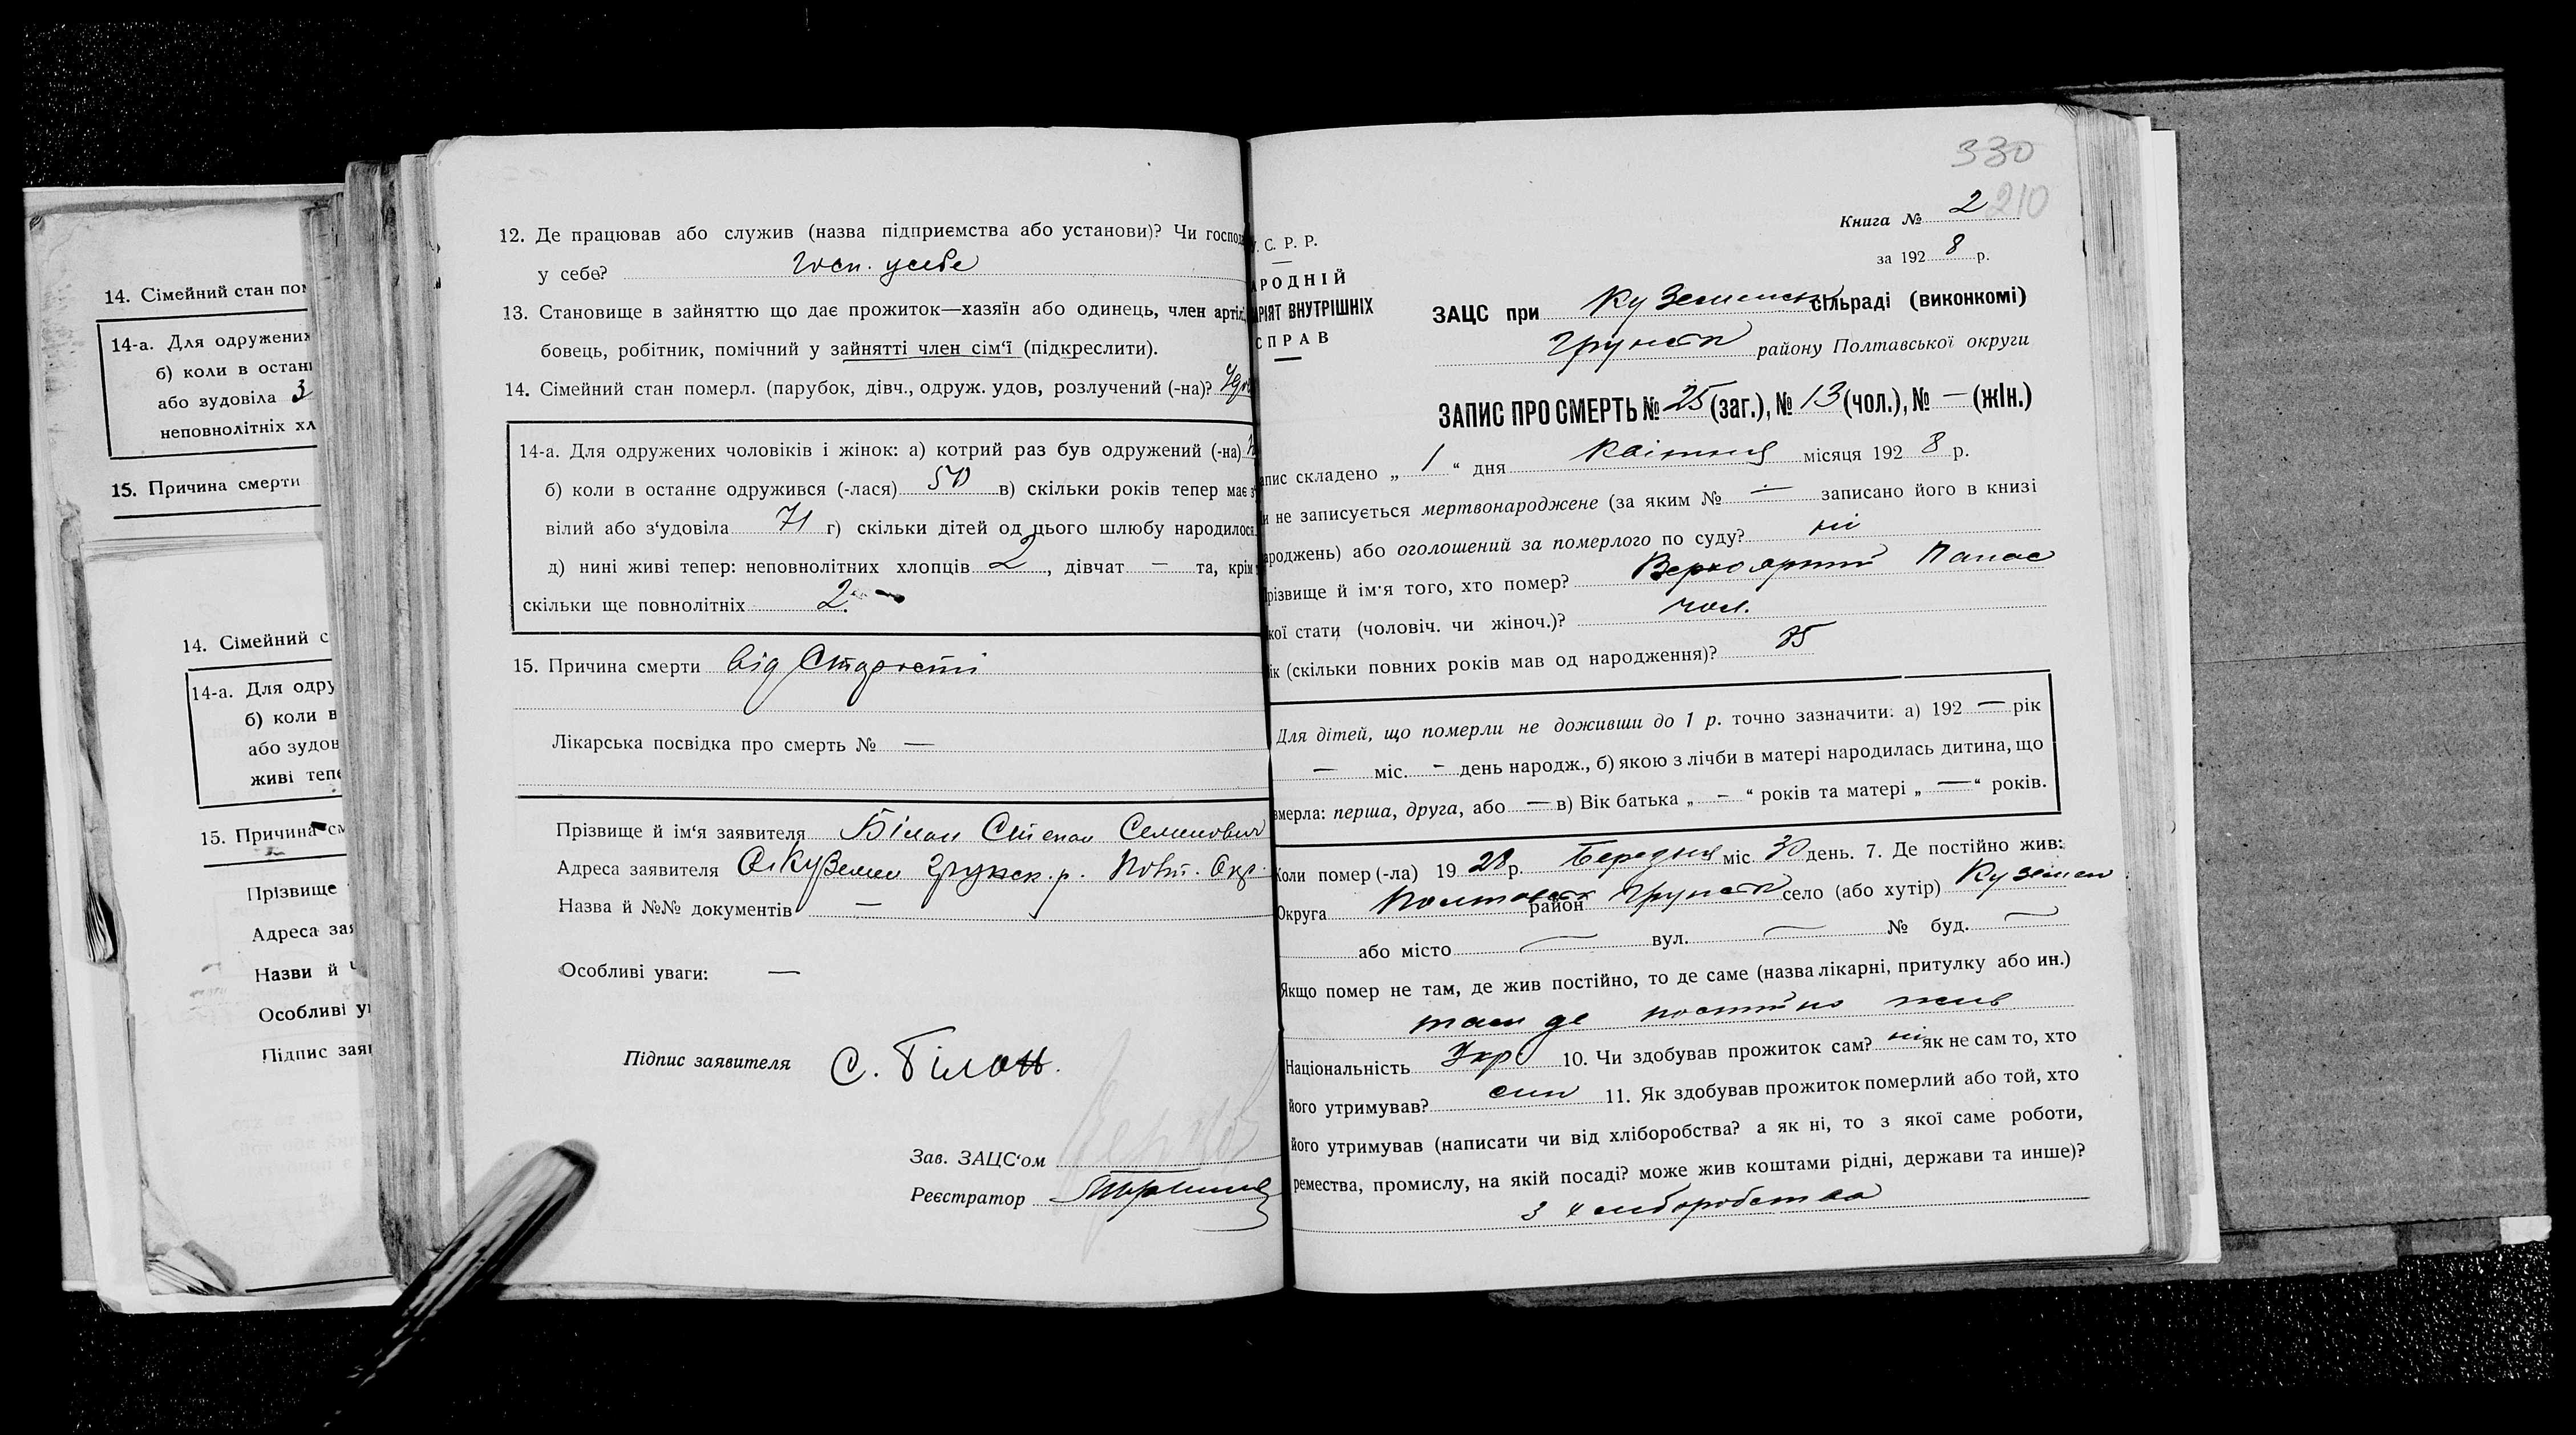 14. Сімейний стан пом
14-а. Для одружених
б) коли в остан
або зудовіла 3
неповнолітніх хл
15. Причина смерти
14. Сімейний с
14-а. Для одру
б) коли в
або зудов
живі тепе
15. Причина см
Прізвище
Адреса зая
Назви й
Особливі у
Підпис заяв
12. Де працював або служив (назва підприємства або установи)? Чи господ
у себе? госп. усебе
13. Становище в зайняттю що дає прожиток—хазяїн або одинець, член артіл
бовець, робітник, помічний у зайнятті член сім'ї (підкреслити).
14. Сімейний стан померл. (парубок, дівч., одруж. удов, розлучений (-на)?
14-а. Для одружених чоловіків і жінок: а) котрий раз був одружений (-на)
б) коли в останнє одружився (-лася) 50 в) скільки років тепер має з
вілий або з'удовіла 71 г) скільки дітей од цього шлюбу народилося
д) нині живі тепер: неповнолітних хлопців 2, дівчат — та, крім
скільки ще повнолітніх 2.
15. Причина смерти від Старості
Лікарська посвідка про смерть № —
Прізвище й ім'я заявителя Білан Степан Семенович
Адреса заявителя
Назва й №№ документів —
Особливі уваги: —
Підпис заявителя С. Білан.
Зав. ЗАЦС'ом
Реєстратор
330
210
Книга № 2
за 1928 р.
У. С. Р. Р.
АРОДНІЙ
АРІЯТ ВНУТРІШНІХ
СПРАВ
ЗАЦС при Куземенск сільраді (виконкомі)
Грунськ району Полтавської округи
ЗАПИС ПРО СМЕРТЬ № 25 (заг.), № 13 (чол.), № — (жін.)
апис складено „ 1 “ дня квітня місяця 1928 р.
и не записується мертвонароджене (за яким № — записано його в книзі
ароджень) або оголошений за померлого по суду? ні
різвище й ім'я того, хто помер? Верхоярний Панас
кої стати (чоловіч. чи жіноч.)? чол.
ік (скільки повних років мав од народження)? 75
Для дітей, що померли не доживши до 1 р. точно зазначити: а) 192 — рік
— міс. - день народж., б) якою з лічби в матері народилась дитина, що
вмерла: перша, друга, або — в) Вік батька „ - “ років та матері „ — “ років.
Коли помер (-ла) 1928 р. Березня міс. 30 день. 7. Де постійно жив:
Округа Полтавськ район Грунськ село (або хутір) Куземен
або місто — вул. — № буд. —
Якщо помер не там, де жив постійно, то де саме (назва лікарні, притулку або ин.)
там де постійно жив
Національність Укр. 10. Чи здобував прожиток сам? ні як не сам то, хто
його утримував? син 11. Як здобував прожиток померлий або той, хто
його утримував (написати чи від хліборобства? а як ні, то з якої саме роботи,
ремества, промислу, на якій посаді? може жив коштами рідні, держави та инше)?
з хліборобства